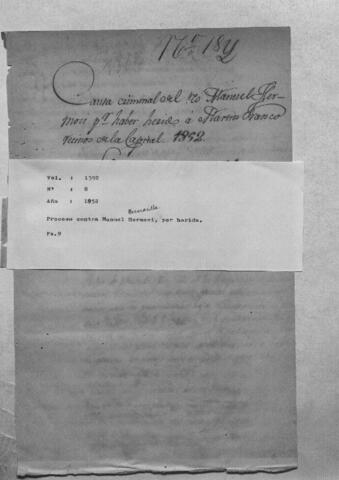 Nº 184
Causa criminal del rº Manuel Her-
mosi pr. haber herido á Martin Franco
vecinos de la Capital 1852.
Vol. : 1598
Nº : 8
Año : 1852
Proceso contra Manuel Hermosi, por herida.
Fs.9